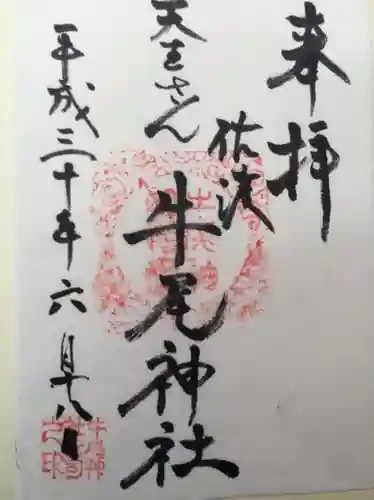 奉拝
佐波
牛尾神社
天王さん
平成三十年六月十八